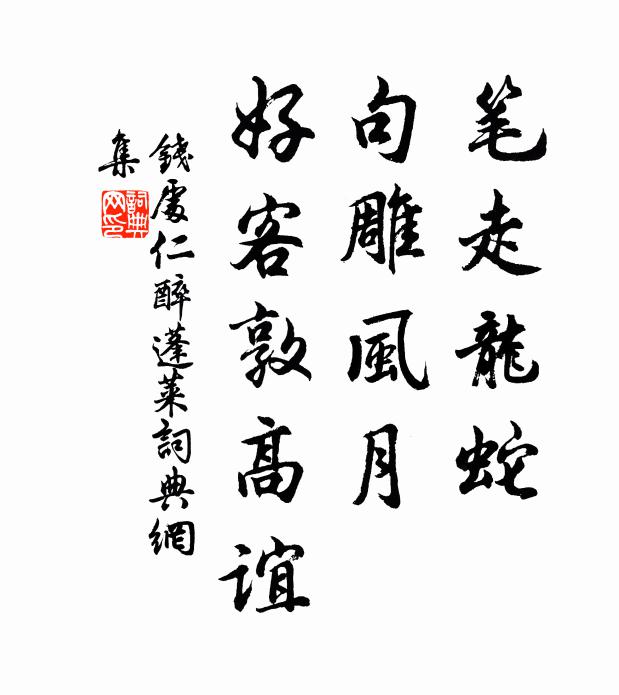 笔走龍蛇
句雕風月
好客敦高誼
錢處仁醉蓬萊詞典網
集
詞典
网印